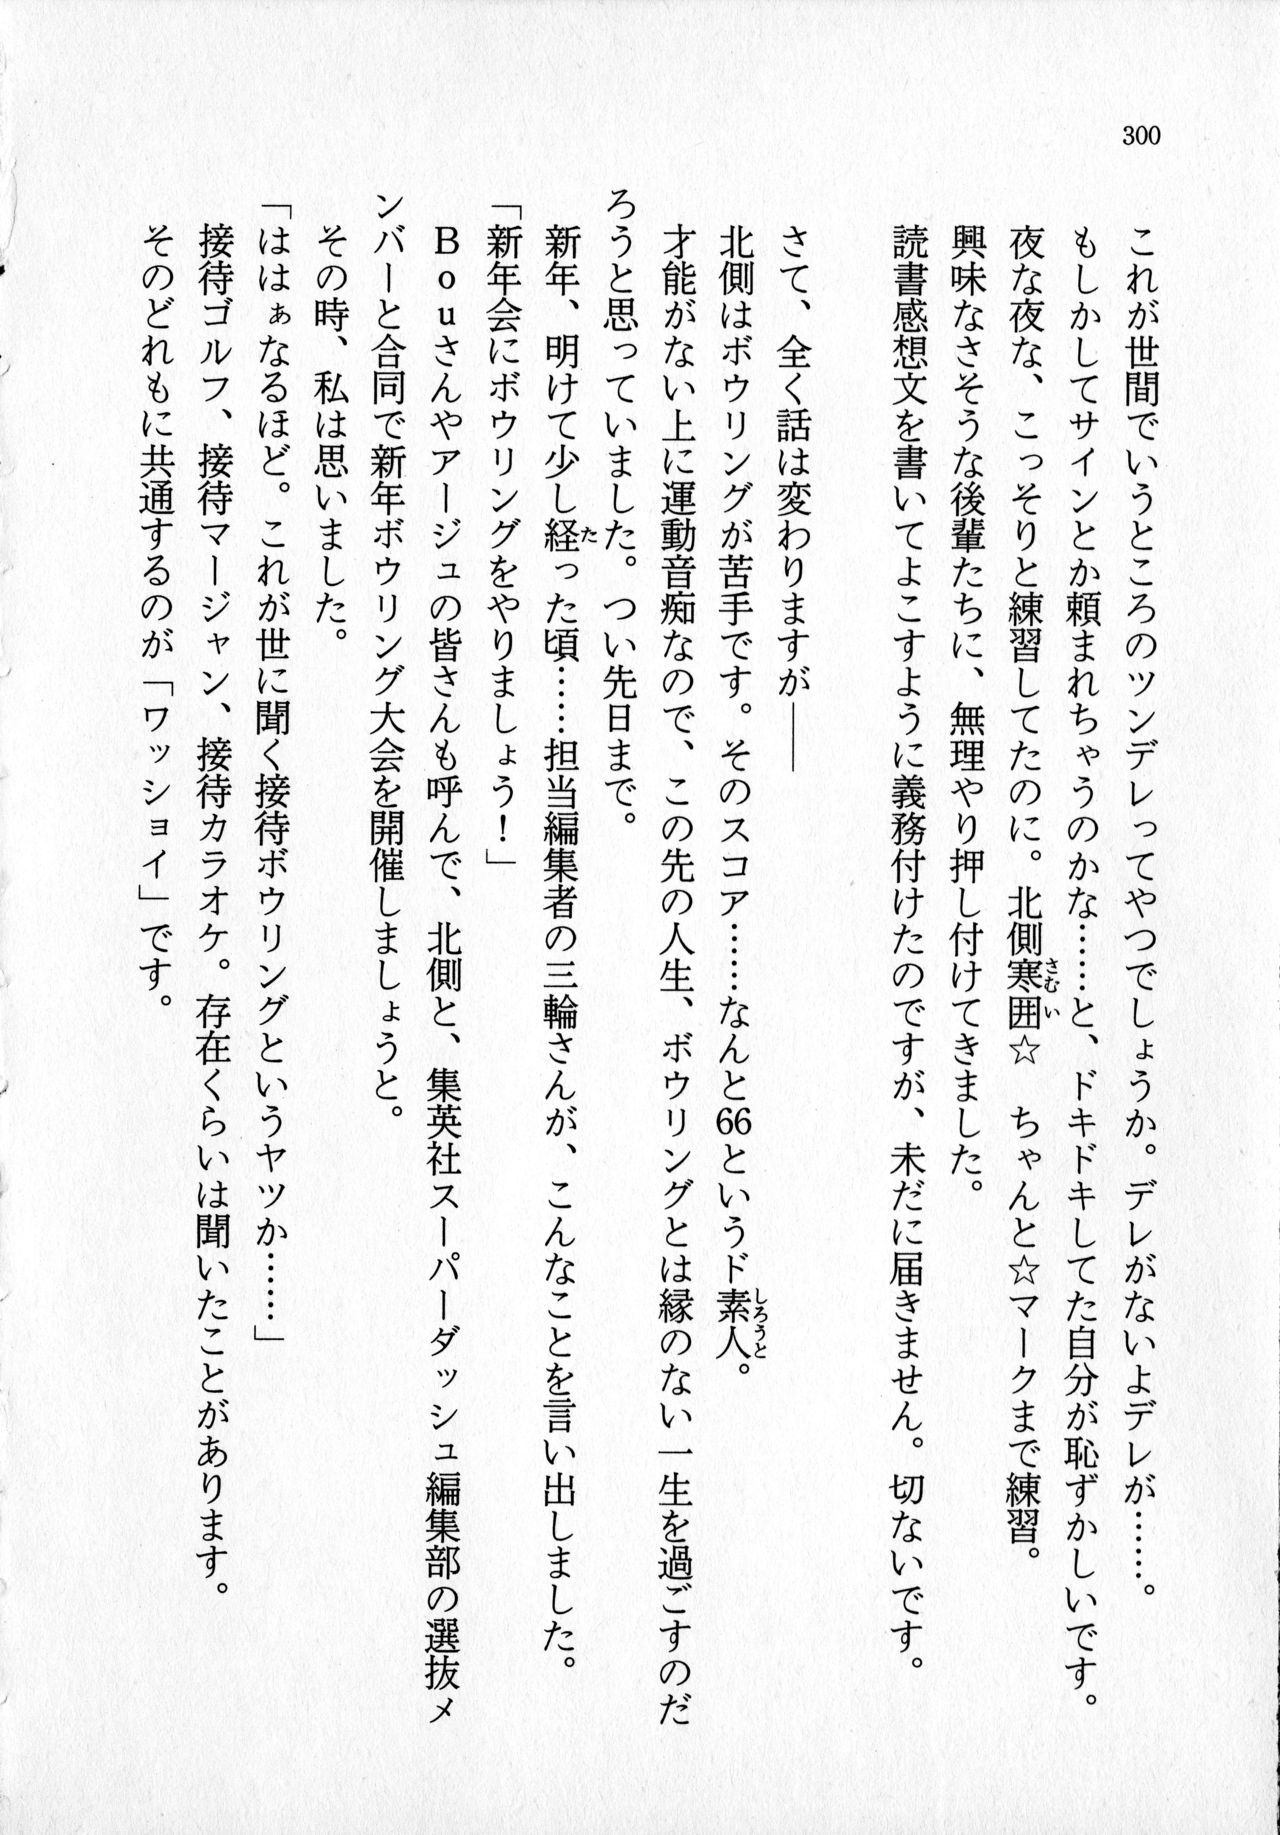 300
これが世間でいうところのツンデレってやつでしょうか。デレがないよデレが……。
もしかしてサインとか頼まれちゃうのかな……と、ドキドキしてた自分が恥ずかしいです。
夜な夜な、こっそりと練習してたのに。北側寒囲☆　ちゃんと☆マークまで練習。
さむい
興味なさそうな後輩たちに、無理やり押し付けてきました。
読書感想文を書いてよこすように義務付けたのですが、未だに届きません。切ないです。
さて、全く話は変わりますが――
北側はボウリングが苦手です。そのスコア……なんと66というド素人。
しろうと
才能がない上に運動音痴なので、この先の人生、ボウリングとは縁のない一生を過ごすのだ
ろうと思っていました。つい先日まで。
新年、明けて少し経った頃……担当編集者の三輪さんが、こんなことを言い出しました。
た
「新年会にボウリングをやりましょう！」
Ｂｏｕさんやアージュの皆さんも呼んで、北側と、集英社スーパーダッシュ編集部の選抜メ
ンバーと合同で新年ボウリング大会を開催しましょうと。
その時、私は思いました。
「ははぁなるほど。これが世に聞く接待ボウリングというヤツか……」
接待ゴルフ、接待マージャン、接待カラオケ。存在くらいは聞いたことがあります。
そのどれもに共通するのが「ワッショイ」です。